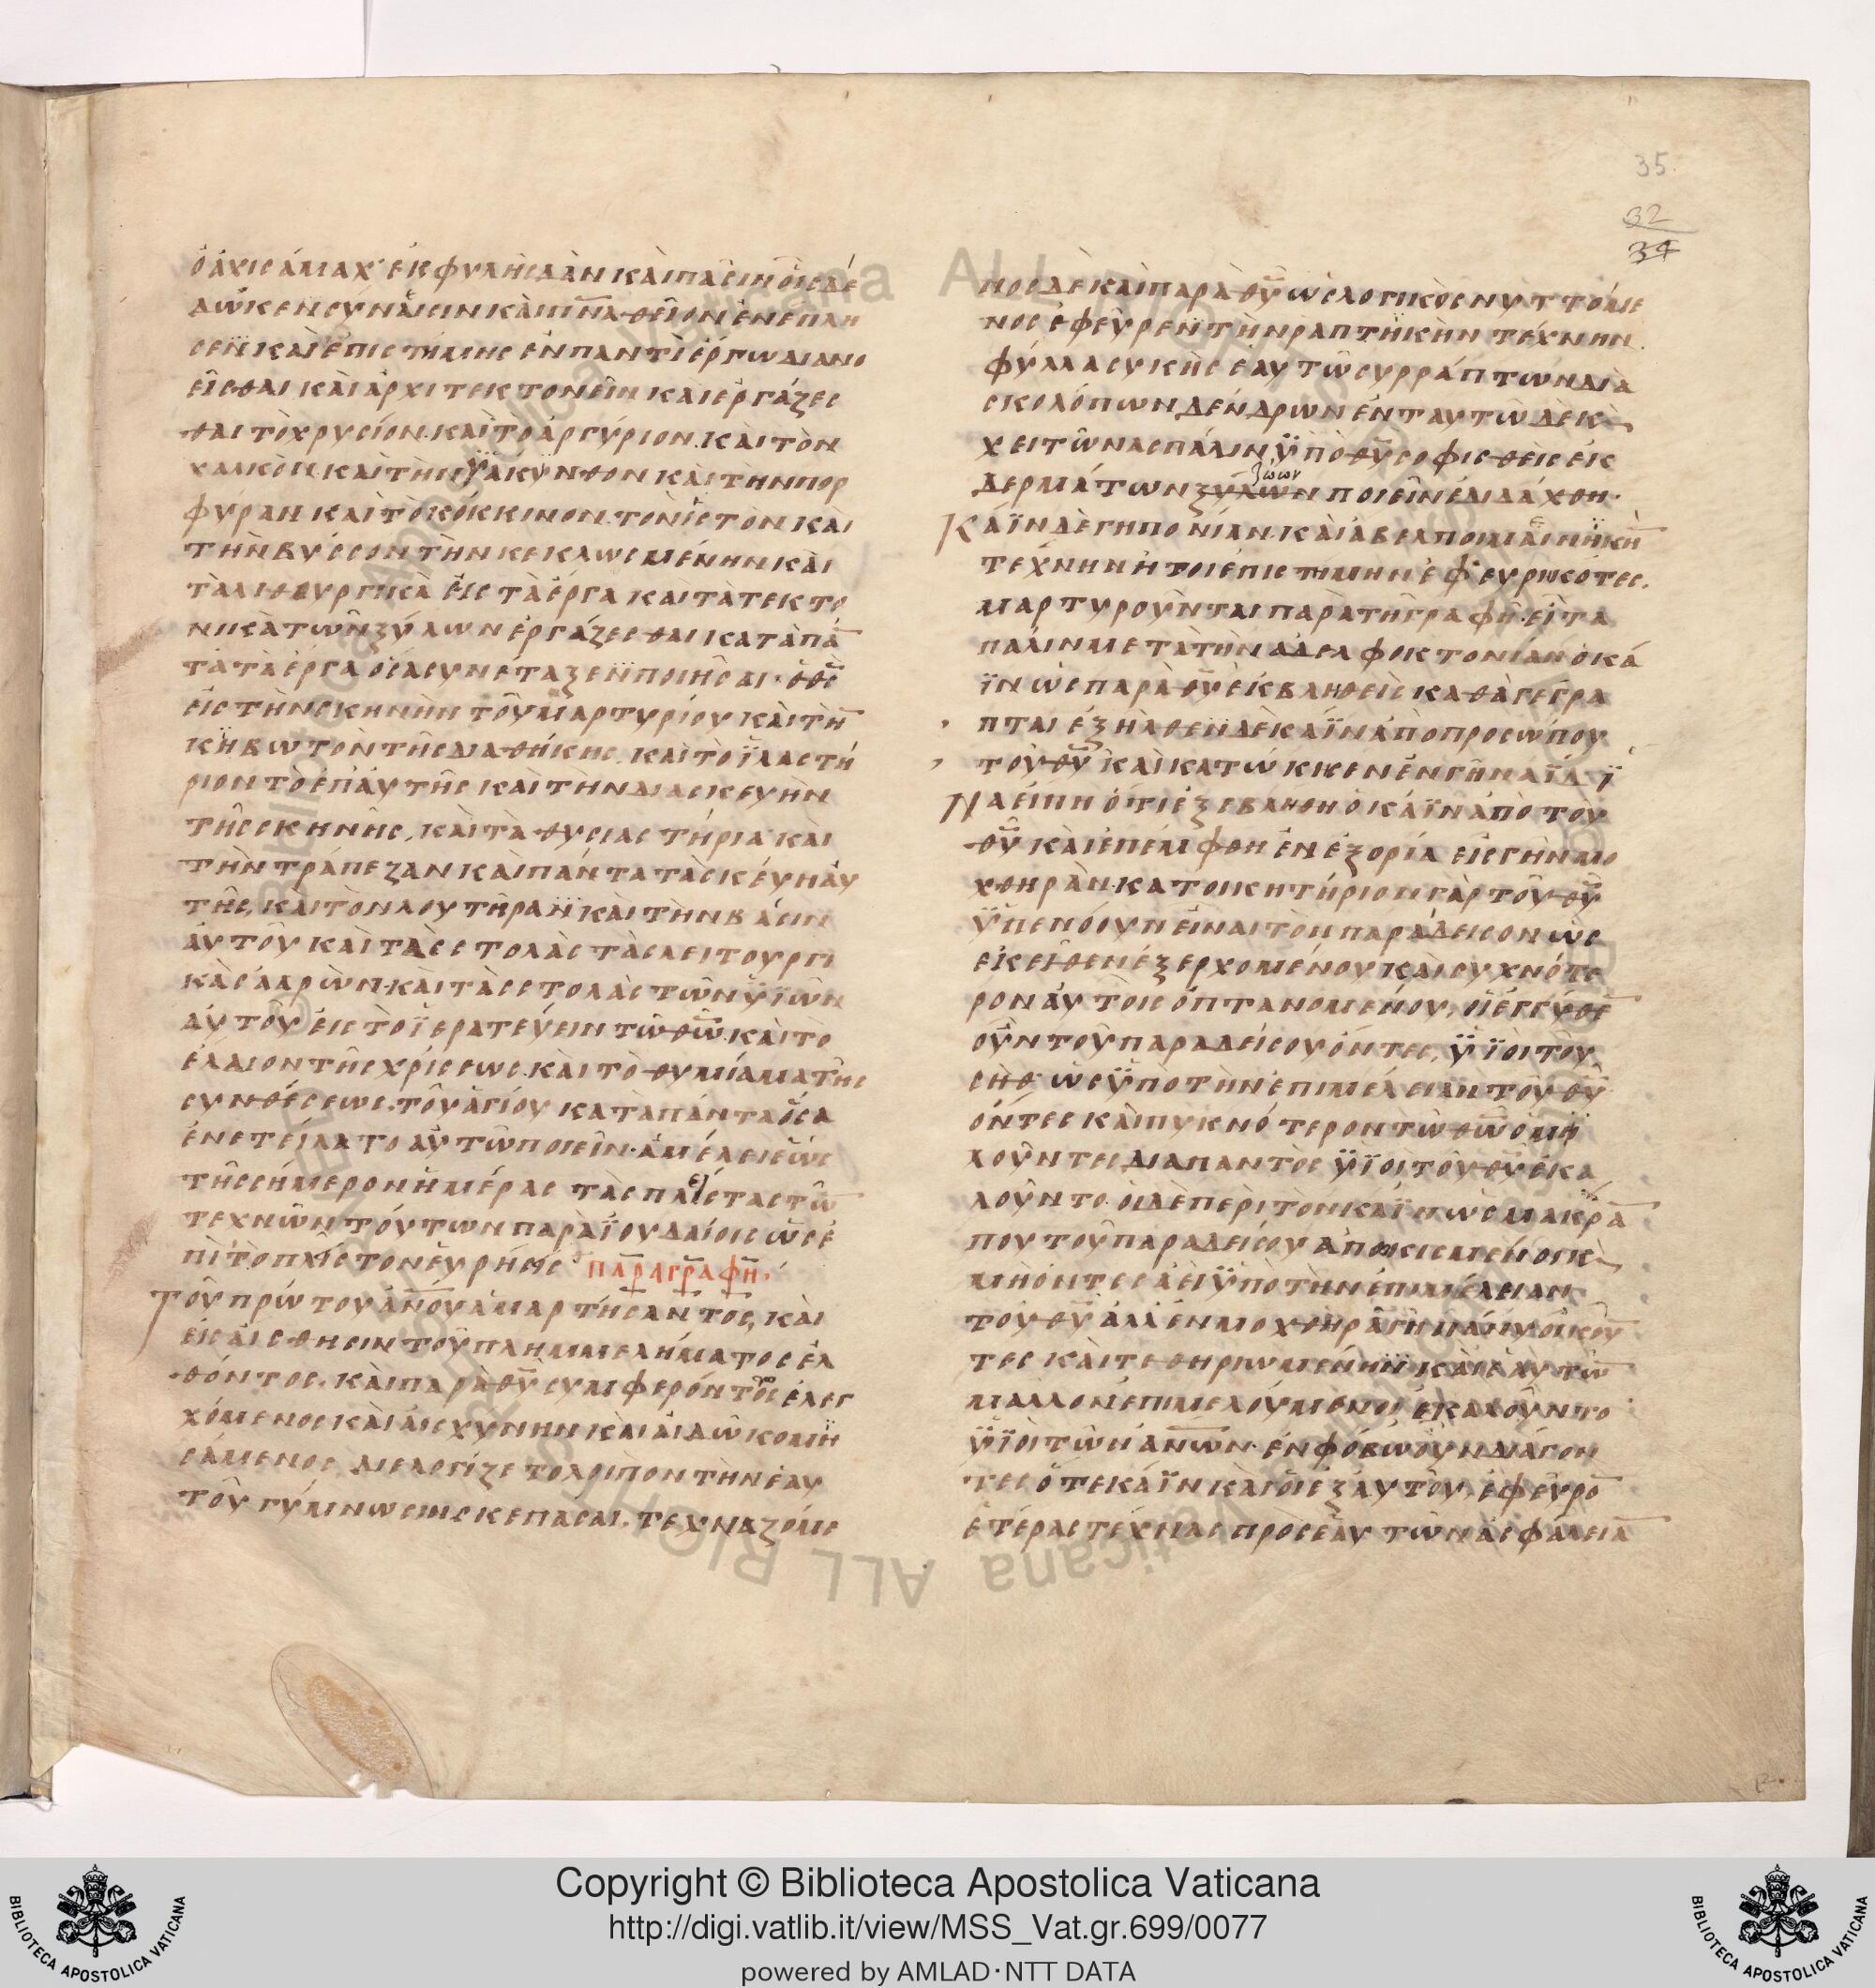 35.
32
34
ὁ ἀχισάμαχ ἐκ φυλῆς δὰν καὶ πᾶσιν οἷς δέ
δωκεν σύνεσιν καὶ πν̅α θεῖον ἐνέπλη
σεν καὶ ἐπιστήμης ἐν παντὶ ἔργω διανο
εῖσθαι καὶ ἀρχιτεκτονεῖν καὶ ἐργάζεσ
θαι τὸ χρυσίον· καὶ τὸ ἀργύριον· καὶ τὸν
χαλκὸν· καὶ τὴν ὑάκυνθον καὶ τὴν πορ
φύραν καὶ τὸ κόκκινον· τὸ νιστὸν καὶ
τὴν βύσσον τὴν κεκλωσμένην καὶ
τὰ λιθουργικὰ εἰς τὰ ἔργα καὶ τὰ τεκτο
νικὰ τῶν ξύλων ἐργάζεσθαι κατὰ πά
τα τὰ ἔργα ὅσα συνέταξεν ποιῆσαι· ὅθε̅
εἰς τὴν σκηνὴν τοῦ μαρτυρίου καὶ τὴ̅
κϊβωτὸν τῆς διαθήκης. καὶ τὸ ϊλαστή
ριον τὸ ἐπ' αὐτῆς καὶ τὴν διασκευὴν
τῆς σκηνῆς, καὶ τὰ θυσιαστήρια καὶ
τὴν τράπεζαν καὶ πάντα τὰ σκεύη αὐ
τῆς, καὶ τὸν λουτῆραν καὶ τὴν βάσιν
αὐτοῦ καὶ τὰς στολὰς τὰς λειτουργι
κὰς ἀαρὼν· καὶ τὰς στολὰς τῶν ϋϊῶν
αὐτοῦ εἰς τὸ ϊερατεύειν τῶ θ̅ω̅. καὶ τὸ
ἔλαιον τῆς χρίσεως. καὶ τὸ θυμίαμα τῆς
συνθέσεως. τοῦ ἁγίου κατὰ πάντα ὅσα
ἐνετείλατο αὐτῶ ποιεῖν· ἀμέλει ἕως
τῆς σήμερον ἡμέρας τὰς πλείστας τῶ̅
τεχνῶν τούτων παρὰ ϊουδαίοις ὡς ἐ
πὶ τὸ πλεῖστον εὑρήσης παραγραφή.
Τοῦ πρώτου ἀν̅ου ἁμαρτήσαντος, καὶ
εἰς αἴσθησιν τοῦ πλημμελήματος ἐλ
θόντος. καὶ παρὰ θ̅υ̅ συμφερόντως ἐλεγ
χόμενος καὶ αἰσχύνην καὶ αἰδῶ κομϊ
σάμενος, διελογίζετο λοιπὸν τὴν ἑαυ
τοῦ γύμνωσιν σκεπάσαι. τεχναζόμε
νος δὲ καὶ παρὰ θ̅υ̅ ὡς λογικὸς νυττόμε
νος ἐφεῦρεν τὴν ῥαπτϊκὴν τέχνην.
φύλλα συκῆς ἑαυτῶ συρράπτων διὰ
σκολόπων δένδρων ἐνταυτῶ δὲ κ
χειτῶνας πάλιν ϋπὸ θ̅υ̅ σοφισθεὶς ἐκ
δερμάτων ξύλων ζώων ποιεῖν ἐδιδάχθη·
Κάϊν δὲ γηπονίαν· καὶ ἄβελ ποιμαινϊκὴ̅
τέχνην ἤτοι ἐπιστήμην ἐφευρηκότες.
μαρτυροῦνται παρὰ τῆ γραφῆ· εἶτα
πάλιν μετὰ τὴν ἀδελφοκτονίαν ὁ κά
ϊν ὡς παρὰ θ̅υ̅ ἐκβληθεὶς καθὰ γέγρα
πται ἐξῆλθεν δὲ κάϊν ἀπὸ προσώπου
τοῦ θ̅υ̅ καὶ κατώκκεν ἐν γῆ ναΐδ ϊ
Να εἴπη ὅτι ἐξεβλήθη ὁ κάϊν ἀπὸ τοῦ
θ̅υ̅ καὶ ἐπέμφθη ἐν ἐξορία εἰς γῆν μο
χθηράν· κατοικητήριον γὰρ τοῦ θ̅υ̅
ϋπενόουν εἶναι τὸν παράδεισον ὡς
ἐκεῖθεν ἐξερχομένου καὶ συχνότε
ρον αὐτοῖς ὀπτανομένου, οἱ ἐγγύθε̅
οὖν τοῦ παραδείσου ὄντες, ϋϊοὶ τοῦ
σὴθ· ὡς ϋπὸ τὴν ἐπιμέλειαν τοῦ θ̅υ̅
ὄντες καὶ πυκνότερον τῶ θ̅ω̅ ὁμϊ
λοῦντες διαπαντὸς ϋϊοὶ τοῦ θ̅υ̅ ἐκα
λοῦντο. οἱ δὲ περὶ τὸν κάϊν ὡς μακρὰ̅
που τοῦ παραδείσου ἀποικισμένοι κ
μὴ ὄντες ἀεὶ ϋπὸ τὴν ἐπιμέλειαν
τοῦ θ̅υ̅ ἀλλ' ἐν μοχθηρᾶ γῆ πάνυ οἰκοῦ̅
τες καὶ τεθηριωμένην καὶ ἑαυτῶ̅
μᾶλλον ἐπιμελούμενοι ἐκαλοῦντο
ϋϊοὶ τῶν ἀν̅ων· ἐν φόβω οὖν διάγον
τες ὅ τε κάϊν καὶ οἱ ἐξ αὐτοῦ, ἐφεῦρο̅
ἑτέρας τέχνας πρὸς ἑαυτῶν ἀσφάλεια̅
Copyright © Biblioteca Apostolica Vaticana
http://digi.vatlib.it/view/MSS_Vat.gr.699/0077
powered by AMLAD·NTT DATA
BIBLIOTECA APOSTOLICA VATICANA
BIBLIOTECA APOSTOLICA VATICANA